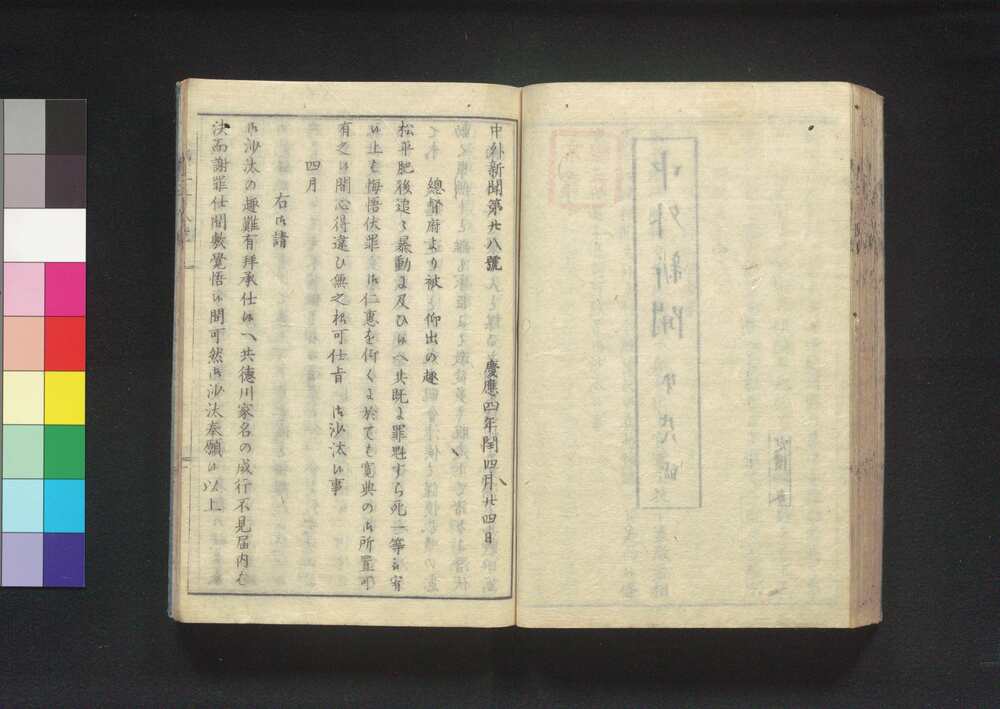 中外新聞第廿八號　慶應四年閏四月廿四日
總督府より被仰出の趣
松平肥後追々暴動に及ひ候へ共既に罪魁すら死一等御宥
候上も悔悟伏罪御仁惠を仰くに於ても寛典の御所置可
有之候間心得違ひ無之樣可仕旨御沙汰候事
四月
右御請
御沙汰の趣難有拜承仕候へ共德川家名の成行不見届内は
決而謝罪仕間敷覺悟候間可然御沙汰奉願候以上
中外新聞